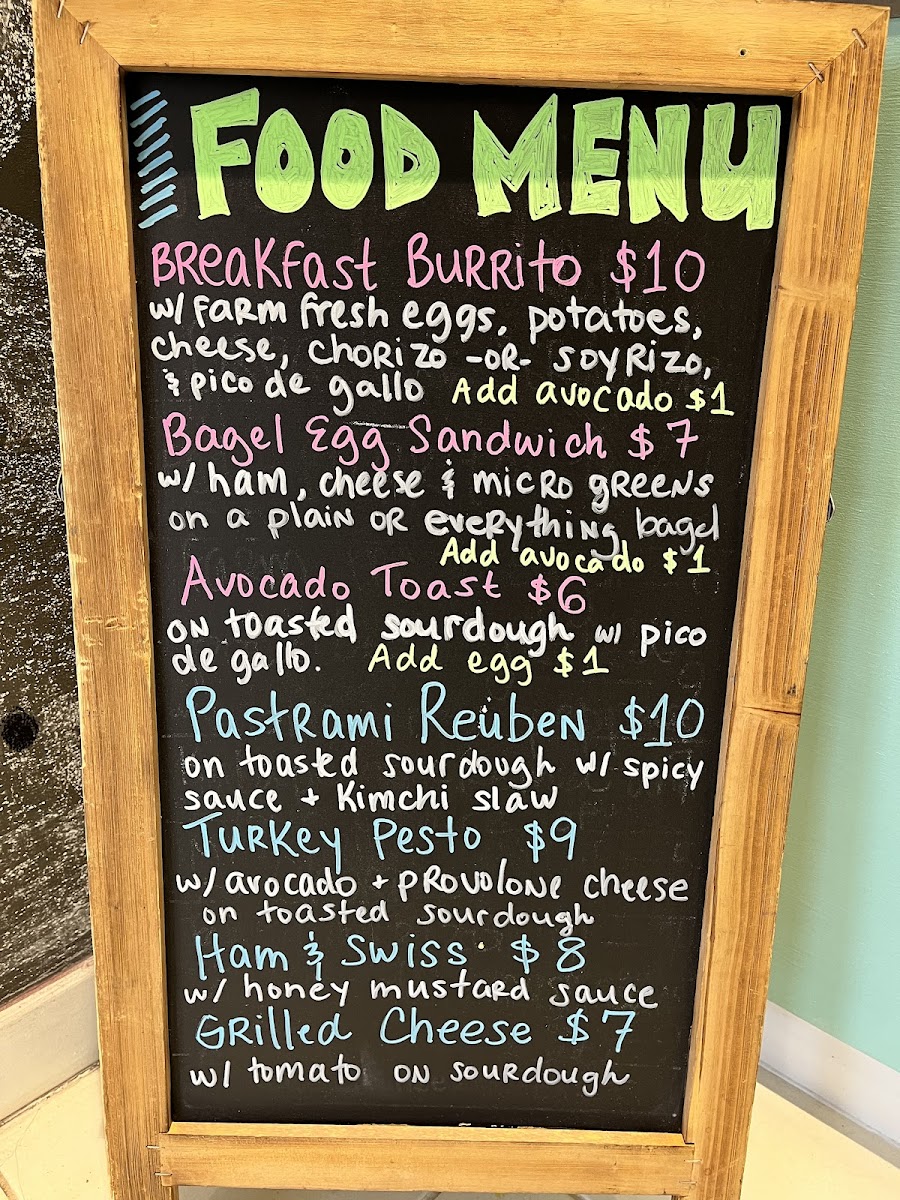 FOOD MENU
Breakfast Burrito $10
w/ farm fresh eggs, potatoes,
cheese, chorizo -or- soyrizo,
& pico de gallo Add avocado $1
Bagel Egg Sandwich $7
w/ ham, cheese & micro greens
on a plain or everything bagel
Add avocado $1
Avocado Toast $6
on toasted sourdough w/ pico
de gallo. Add egg $1
Pastrami Reuben $10
on toasted sourdough w/ spicy
sauce + Kimchi slaw
Turkey Pesto $9
w/ avocado + provolone cheese
on toasted sourdough
Ham & Swiss $8
w/ honey mustard sauce
Grilled Cheese $7
w/ tomato on sourdough